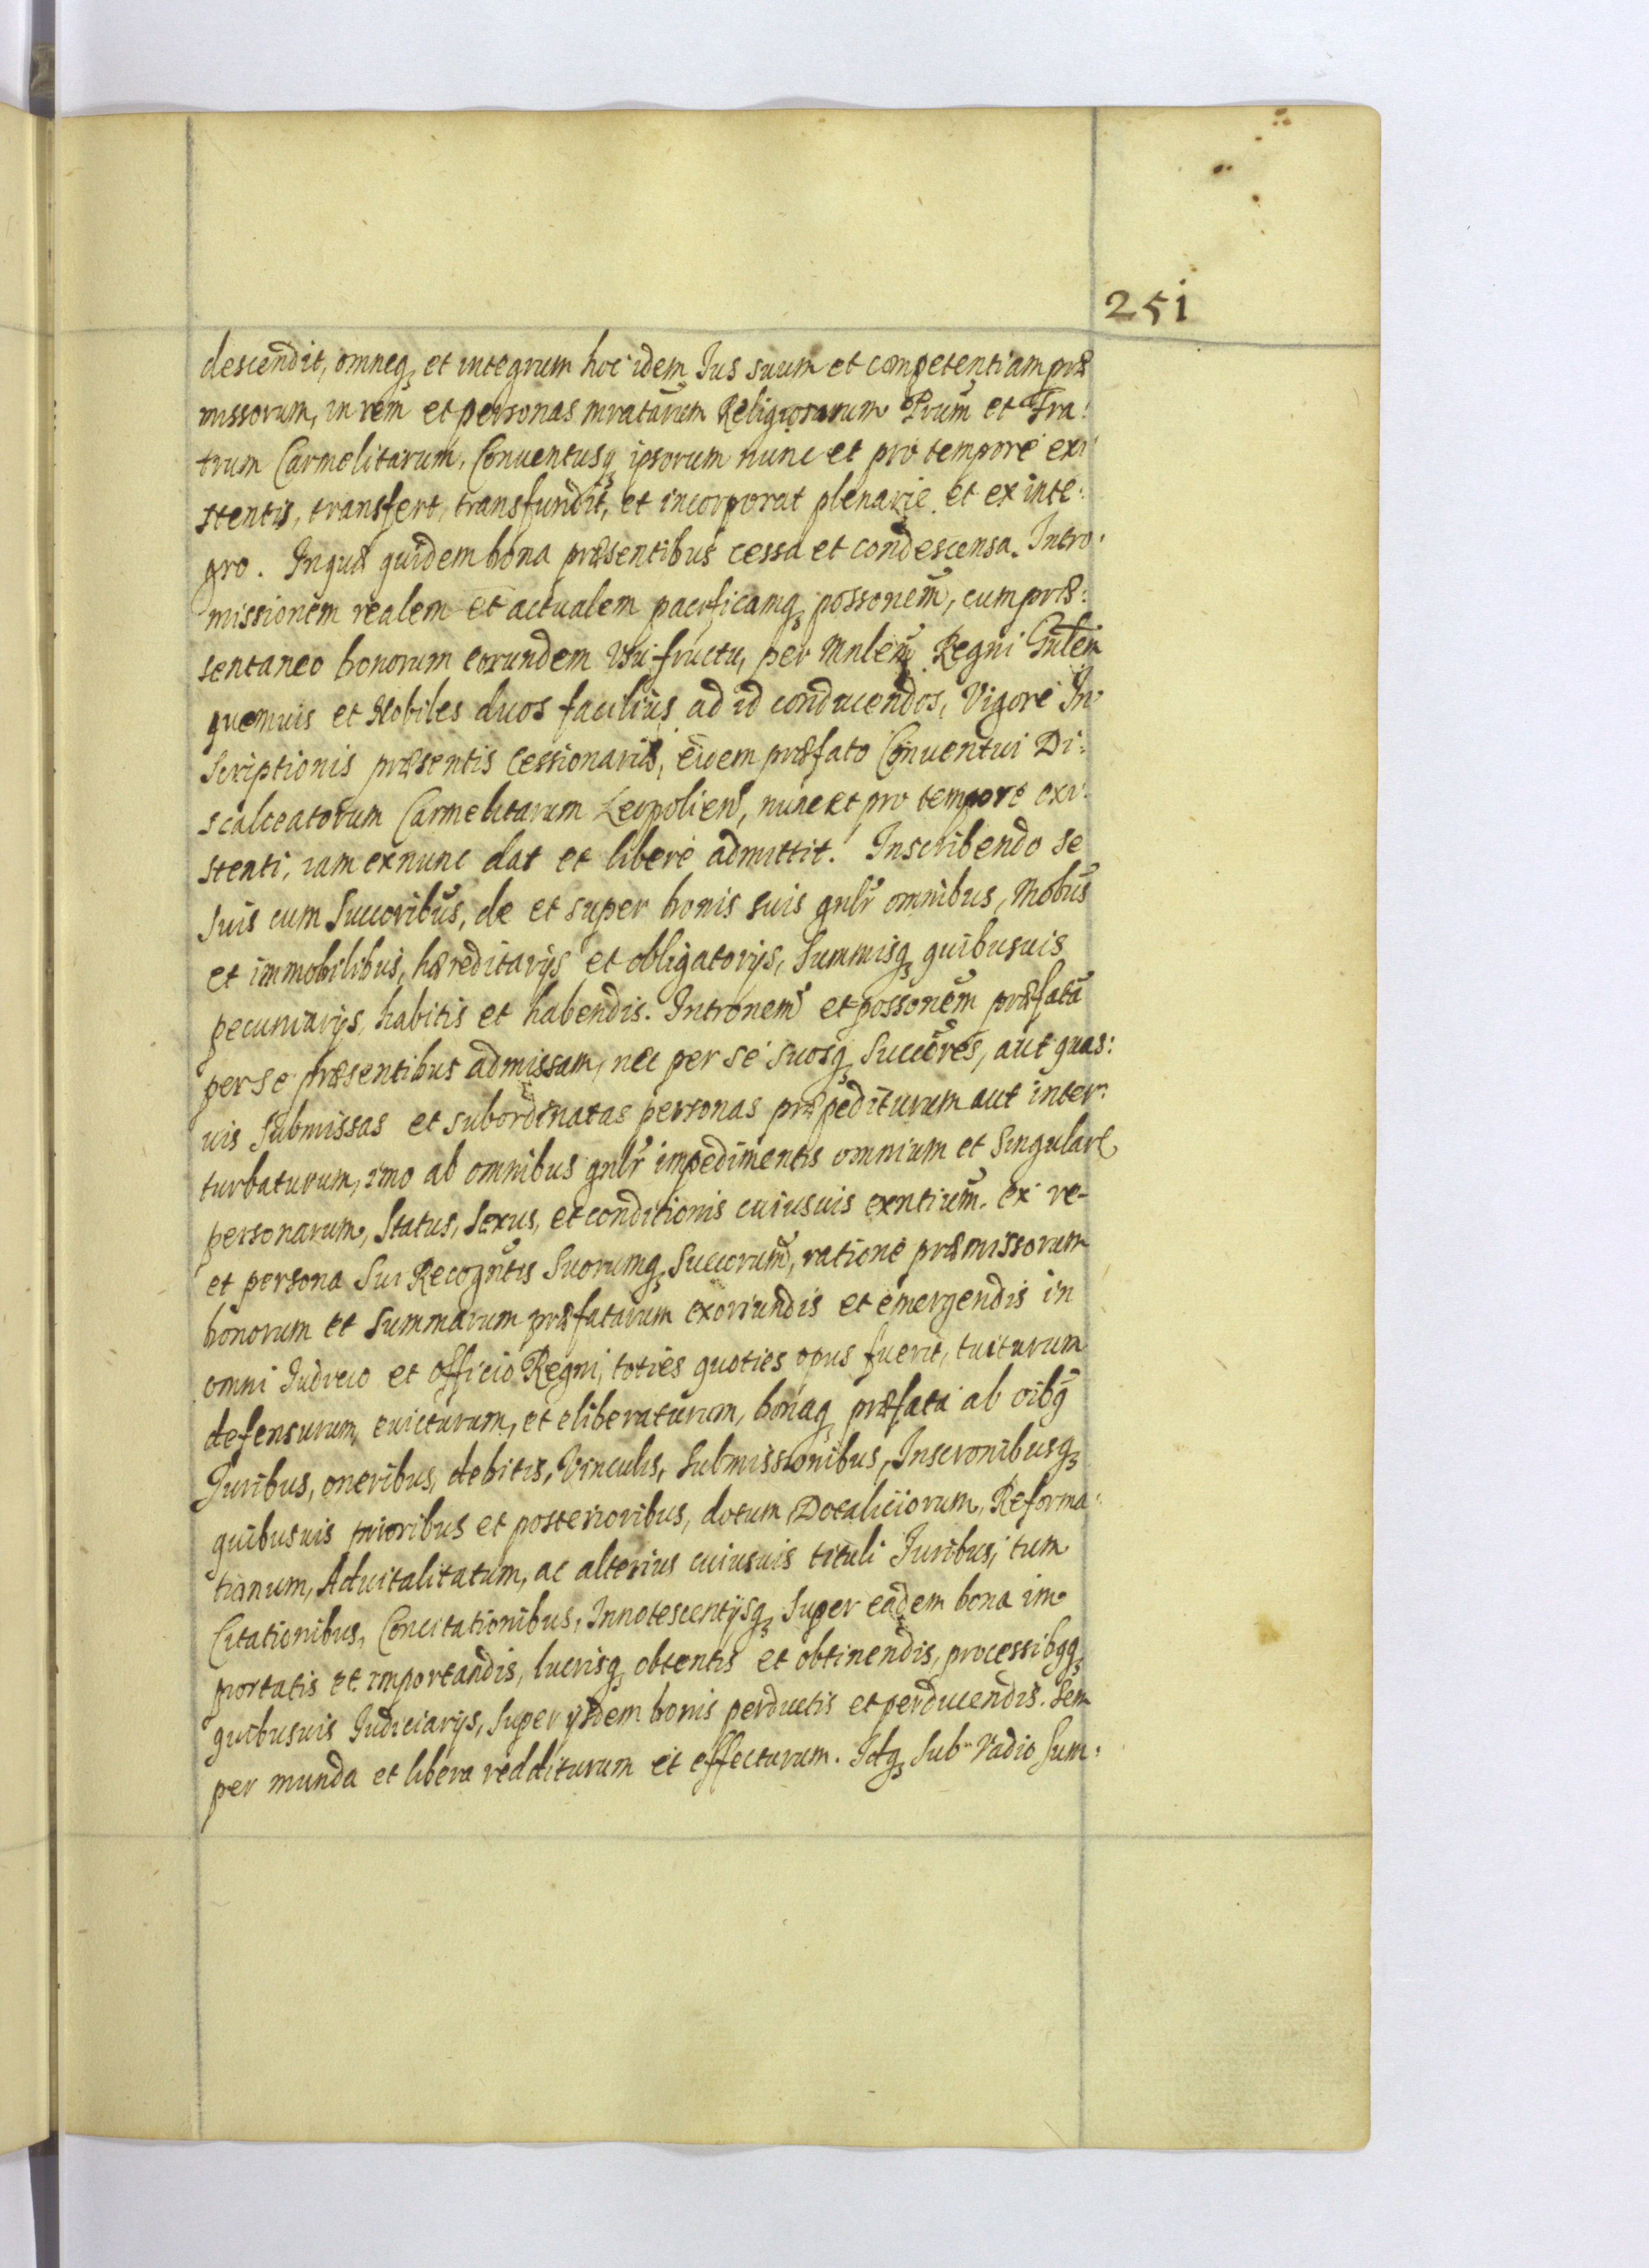 251
descendit, omneq, et integrum hoc idem Ius suum et competentiam præ
missorum, in rem et personas mratarum Religiosarum Prum et Fra:
trum Carmelitarum, Conuentusq ipsorum nunc et pro tempore exi
stentis, transfert, transfundit, et incorporat plenarie et ex inte:
gro. In quæ quidem bona præsentibus cessa et condescensa. Intro:
missionem realem et actualem pacificamq possonem, cum præ:
sentaneo bonorum eorundem Vsu fructu, per Mnlem Regni Gnlem
quemuis et Nobiles duos facilius ad id conducendos, Vigore In
Scriptionis præsentis Cessionariæ, eidem præfato Conuentui Di:
scalceatorum Carmelitarum Leopolien, nunc et pro tempore exi:
stenti, iam exnunc dat et libere admittit. Inscribendo se
Suis cum Succoribus, de et super bonis suis gnlr omnibus, Mobus
et immobilibus, hæreditarijs et obligatorijs, Summisq quibusuis
pecuniarijs, habitis et habendis. Intronem et possonem præfata
per se præsentibus admissam, nec per se suosq Succores, aut quas:
uis Submissas et subordinatas personas præpediturum aut inter:
turbaturum, imo ab omnibus gnlr impedimentis omnium et Singulare
personarum, Status, Sexus, et conditionis cuiusuis exntium. ex re-
et persona Sui Recogntis Suorumq Succorum, ratione præmissorum
bonorum et Summarum præfatarum exoriundis et emergendis in
omni Iudicio et Officio Regni, toties quoties opus fuerit, tuiturum
defensurum, euicturum, et eliberaturum, bonaq præfata ab oibg
Iuribus, oneribus, debitis, Vinculis, Submissionibus, Inscronibusq
quibusuis prioribus et posterioribus, dotum Dotaliciorum, Reforma:
tionum, Aduitalitatum, ac alterius cuiusuis tituli Iuribus, tum
Citationibus, Concitationibus, Innotescentijsq Super eadem bona im
portatis et importandis, lucrisq obtentis et obtinendis, processibgq
quibusuis Iudiciarijs, Super ijsdem bonis perductis et perducendis. Sem
per munda et libera redditurum et effecturum. Idq Sub Vadio Sum: